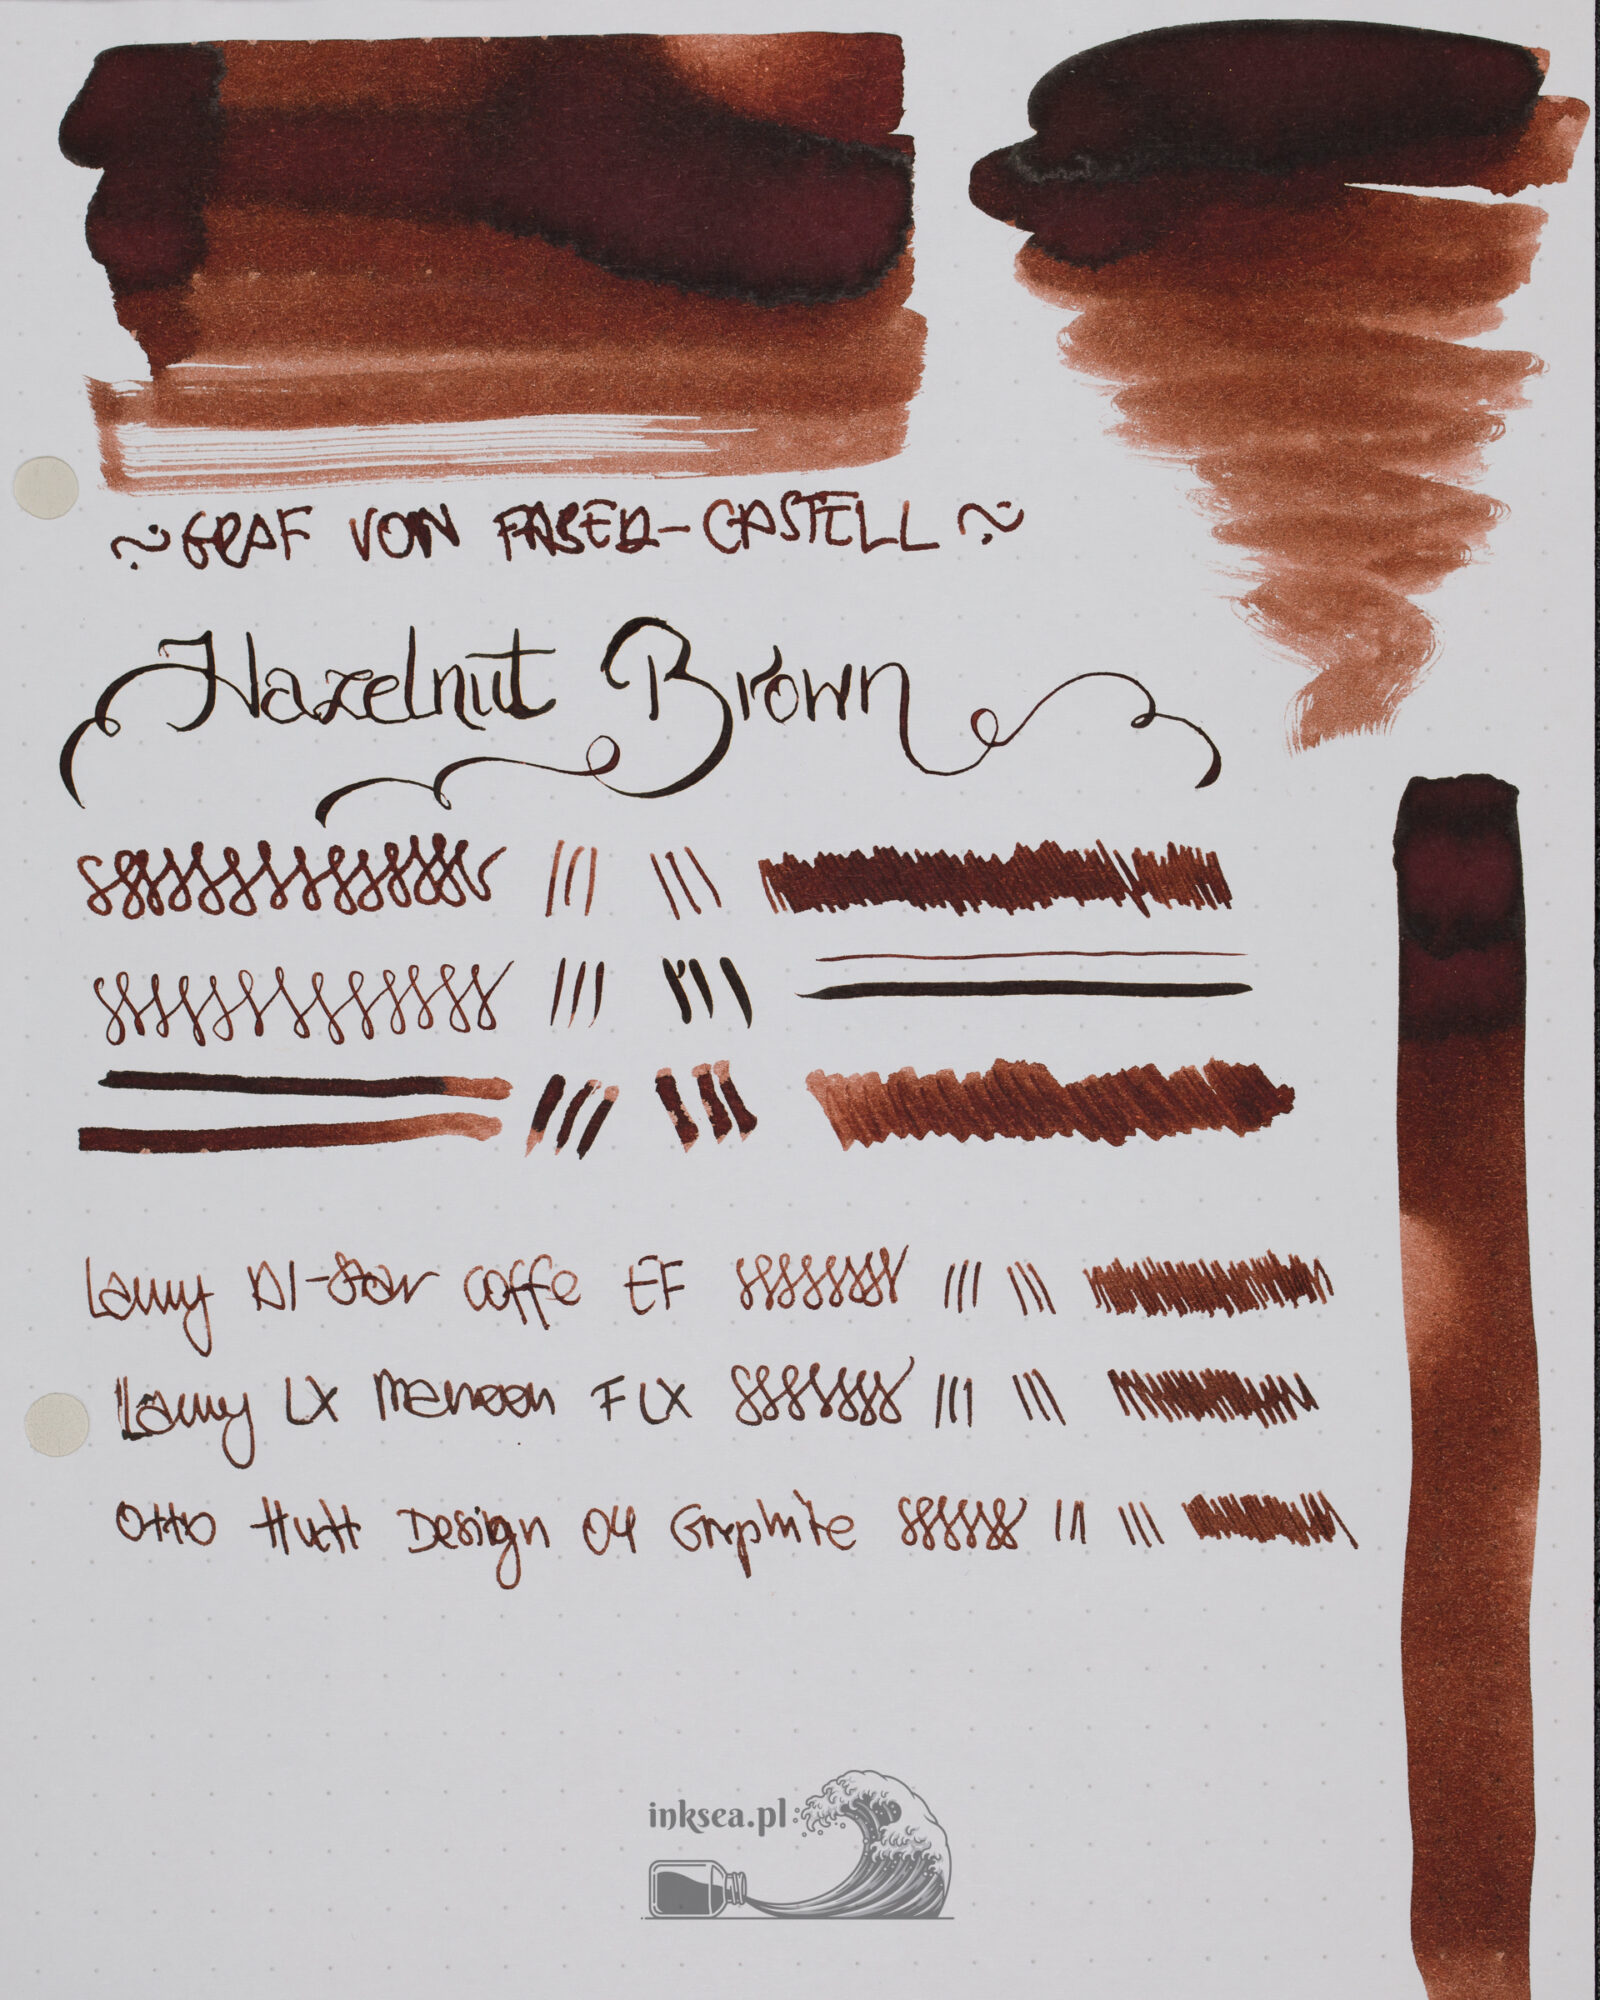 ~GRAF VON FABER-CASTELL~
Hazelnut Brown
Lamy Al-Star Coffe EF
Lamy LX Maroon F LX
Otto Hutt Design 04 Graphite
inksea.pl